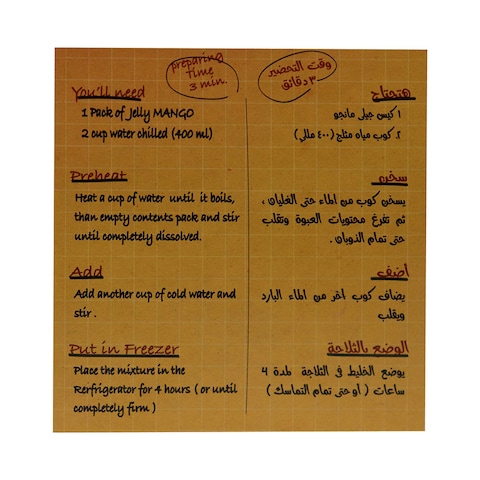 preparing
time
3 min.
You'll need
1 Pack of Jelly MANGO
2 cup water chilled (400 ml)
Preheat
Heat a cup of water until it boils,
than empty contents pack and stir
until completely dissolved.
Add
Add another cup of cold water and
stir .
Put in Freezer
Place the mixture in the
Rerfrigerator for 4 hours ( or until
completely firm )
وقت التحضير
٣ دقائق
هتحتاج
١ كيس جيلى مانجو
٢ كوب مياه مثلج (٤٠٠ مللي)
سخن
يسخن كوب من الماء حتى الغليان ،
ثم تفرغ محتويات العبوة وتقلب
حتى تمام الذوبان .
أضف
يضاف كوب اخر من الماء البارد
ويقلب
الوضع بالثلاجة
يوضع الخليط فى الثلاجة لمدة ٤
ساعات ( أو حتى تمام التماسك )